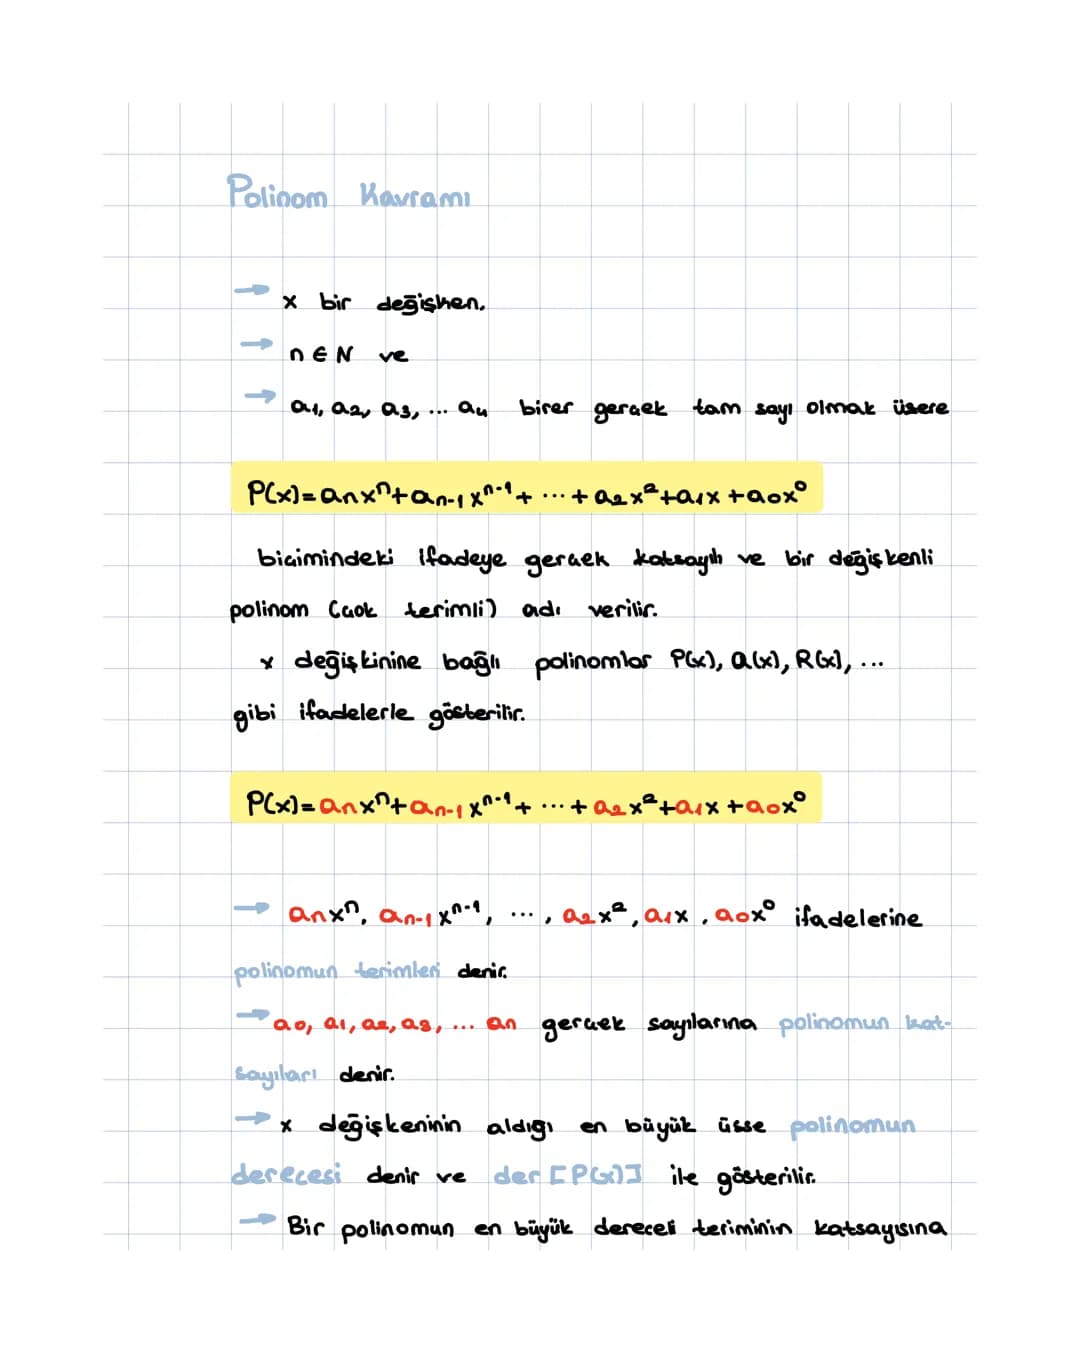 Polinom Kavramı
→ x bir değişken.
→ n ∈ N ve
→ a₁, a₂, a₃, ... a₄ birer gerçek tam sayı olmak üzere
P(x)=aₙxⁿ+aₙ₋₁xⁿ⁻¹+ ··· + a₂x²+a₁x +a₀x⁰
biçimindeki ifadeye gerçek katsayılı ve bir değişkenli
polinom (çok terimli) adı verilir.
x değişkinine bağlı polinomlar P(x), Q(x), R(x), ...
gibi ifadelerle gösterilir.
P(x)=aₙxⁿ+aₙ₋₁xⁿ⁻¹+ ··· + a₂x²+a₁x +a₀x⁰
→ aₙxⁿ, aₙ₋₁xⁿ⁻¹, ··· , a₂x², a₁x , a₀x⁰ ifadelerine
polinomun terimleri denir.
→ a₀, a₁, a₂, a₃, ... aₙ gerçek sayılarına polinomun kat-
sayıları denir.
→ x değişkeninin aldığı en büyük üsse polinomun
derecesi denir ve der [P(x)] ile gösterilir.
→ Bir polinomun en büyük dereceli teriminin katsayısına